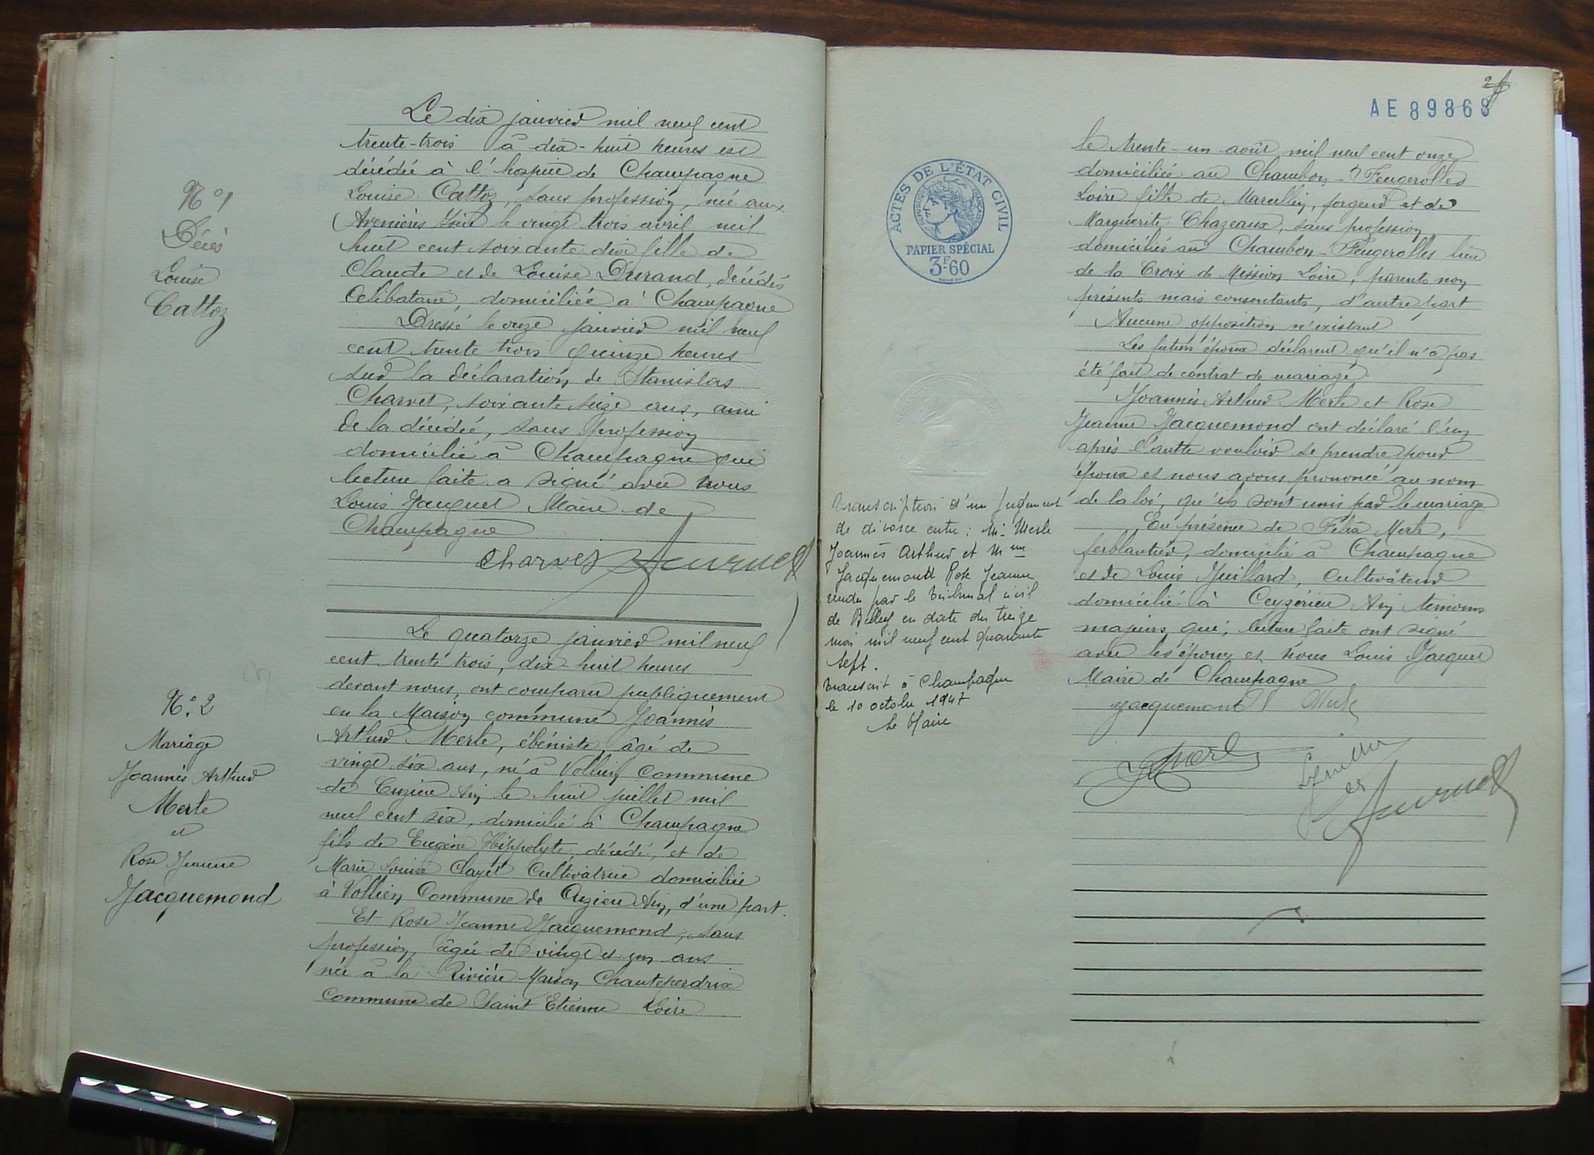 Le dix janvier mil neuf cent
trente-trois à dix-huit heures est
décédée à l'hospice de Champagne
Louise Cattoz, sans profession, née aux
Avenières Isère le vingt trois avril mil
huit cent soixante dix fille de
Claude et de Louise Durand, décédés
Célibataire, domiciliée à Champagne
Dressé le onze janvier mil neuf
cent trente trois quinze heures
sur la déclaration de Stanislas
Charvet, soixante seize ans, ami
de la décédée, sans profession
domicilié à Champagne qui
lecture faite a signé avec nous
Louis Jacquet Maire de
Champagne
Charvet
N° 1
Décès
Louise
Cattoz
Le quatorze janvier mil neuf
cent trente trois, dix huit heures
devant nous, ont comparu publiquement
en la Maison commune Joannès
Arthur Merle, ébéniste, âgé de
vingt six ans, né à Vollien Commune
de Cuzieu Ain le huit juillet mil
neuf cent six, domicilié à Champagne
fils de Eugène Hippolyte, décédé, et de
Marie Louise Clayet Cultivatrice domiciliée
à Vollien Commune de Cuzieu Ain, d'une part.
Et Rose Jeanne Jacquemond, sans
profession, âgée de vingt et un ans
née à la Rivière Maison Chanteperdrix
Commune de Saint Etienne Loire
N° 2
Mariage
Joannès Arthur
Merle
et
Rose Jeanne
Jacquemond
AE 89868
le trente-un août mil neuf cent onze
domiciliée au Chambon-Feugerolles
Loire fille de Marcellin, forgeur et de
Marguerite Chazeaux, sans profession
domiciliés au Chambon-Feugerolles lieu
de la Croix de Mission Loire, parents non
présents mais consentants, d'autre part
Aucune opposition n'existant
Les futurs époux déclarent qu'il n'a pas
été fait de contrat de mariage
Joannès Arthur Merle et Rose
Jeanne Jacquemond ont déclaré l'un
après l'autre vouloir se prendre pour
époux et nous avons prononcé au nom
de la loi, qu'ils sont unis par le mariage
En présence de Merle,
ferblantier, domicilié à Champagne
et de Louis Juillard, Cultivateur
domicilié à Ceyzérieu Ain témoins
majeurs qui, lecture faite ont signé
avec les époux et Nous Louis Jacquet
Maire de Champagne
Jacquemond Merle
Merle
ACTES DE L'ÉTAT CIVIL
PAPIER SPÉCIAL
3F.60
Transcription d'un jugement
de divorce entre : Mr Merle
Joannès Arthur et Mme
Jacquemond Rose Jeanne
rendu par le tribunal civil
de Belley en date du treize
mai mil neuf cent quarante
sept.
Transcrit à Champagne
le 10 octobre 1947
Le Maire